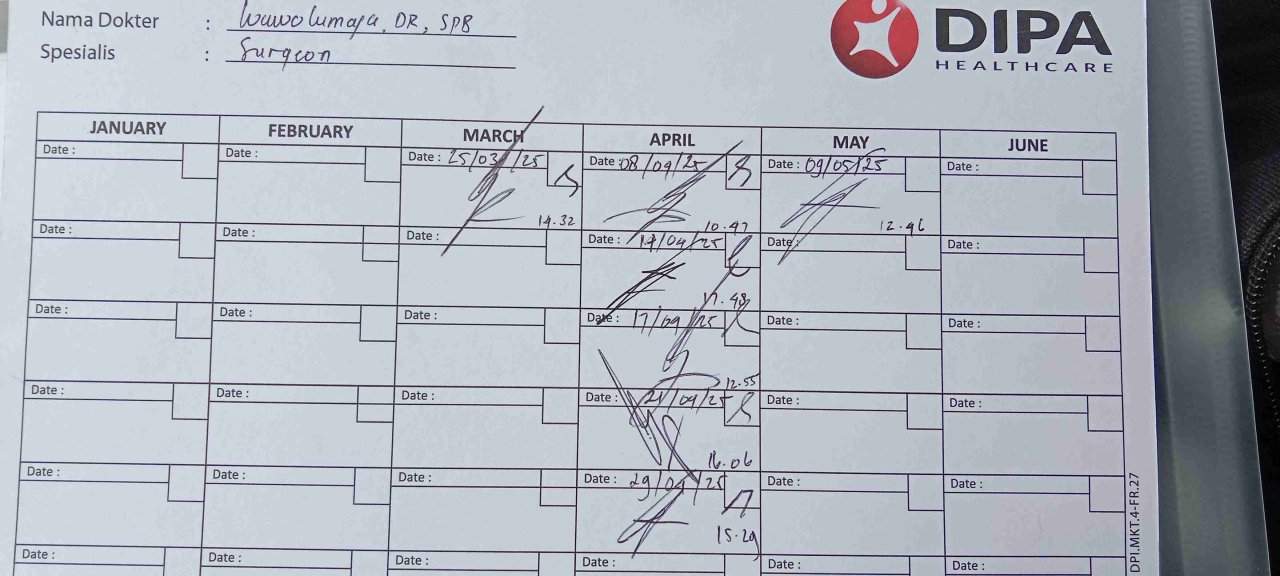 Nama Dokter : Wawolumaja, DR, SPB
Spesialis : Surgeon
DIPA
HEALTHCARE
JANUARY FEBRUARY MARCH APRIL MAY JUNE
Date : Date : Date : 25/03/25 Date : 08/04/25 Date : 09/05/25 Date :
14.32 10.47 12.46
Date : Date : Date : Date : 14/04/25 Date : Date :
17.48
Date : Date : Date : Date : 17/04/25 Date : Date :
12.55
Date : Date : Date : Date : 21/04/25 Date : Date :
16.06
Date : Date : Date : Date : 29/04/25 Date : Date :
15.29
Date : Date : Date : Date : Date : Date :
DPI.MKT.4-FR.27